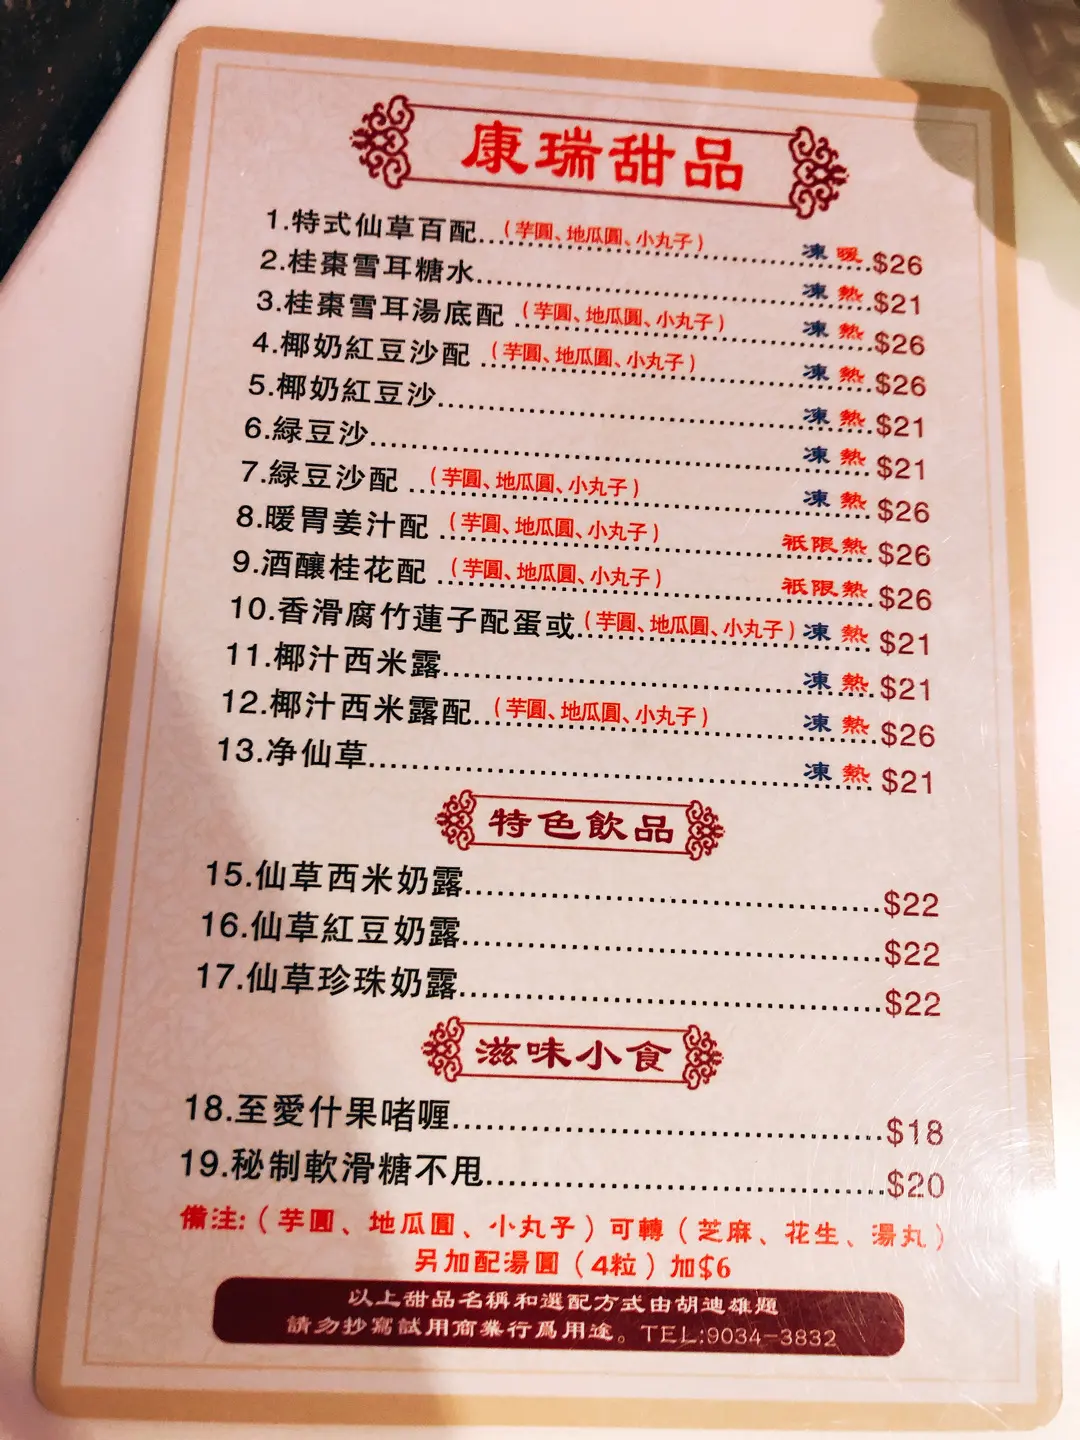 康瑞甜品
1.特式仙草百配......(芋圓、地瓜圓、小丸子) 凍 暖 $26
2.桂棗雪耳糖水...... 凍 熱 $21
3.桂棗雪耳湯底配......(芋圓、地瓜圓、小丸子) 凍 熱 $26
4.椰奶紅豆沙配......(芋圓、地瓜圓、小丸子) 凍 熱 $26
5.椰奶紅豆沙...... 凍 熱 $21
6.緑豆沙...... 凍 熱 $21
7.緑豆沙配......(芋圓、地瓜圓、小丸子) 凍 熱 $26
8.暖胃姜汁配......(芋圓、地瓜圓、小丸子) 祇限熱 $26
9.酒釀桂花配......(芋圓、地瓜圓、小丸子) 祇限熱 $26
10.香滑腐竹蓮子配蛋或......(芋圓、地瓜圓、小丸子) 凍 熱 $21
11.椰汁西米露...... 凍 熱 $21
12.椰汁西米露配......(芋圓、地瓜圓、小丸子) 凍 熱 $26
13.净仙草...... 凍 熱 $21
特色飲品
15.仙草西米奶露......$22
16.仙草紅豆奶露......$22
17.仙草珍珠奶露......$22
滋味小食
18.至愛什果啫喱......$18
19.秘制軟滑糖不甩......$20
備注:(芋圓、地瓜圓、小丸子)可轉(芝麻、花生、湯丸)
另加配湯圓(4粒)加$6
以上甜品名稱和選配方式由胡迪雄題
請勿抄寫試用商業行爲用途。TEL:9034-3832